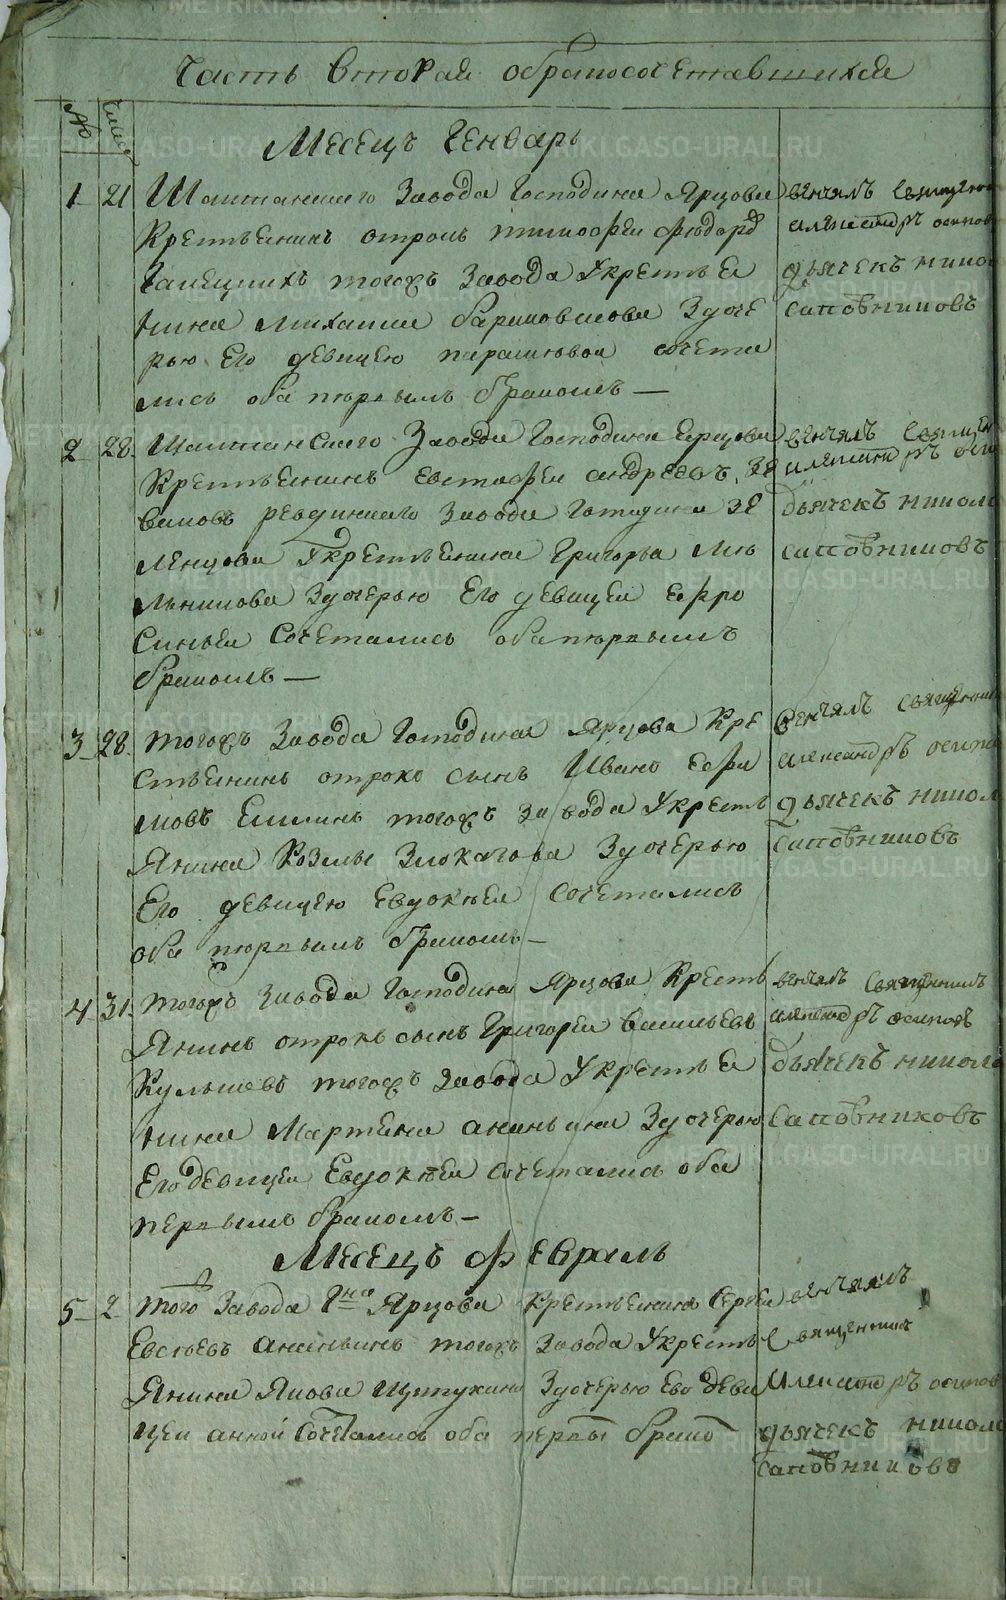 Часть вторая обраносочетавшихся
№ Число
Месецъ Генварь
1 21 Шаитанского Завода Господина Ярцова
Крестьенинъ отрокъ тимофеи федоров
тогожъ Завода Укрестье
нина михаила Здоче
рью Его девицею парасковеи сочета
лись оба первымъ бракомъ —
венчалъ священ
александръ осипов
дьячекъ никол
сапожниковъ
2 28 Шаитанского Завода Господина Ерцова
Крестьенинъ евстафеи андреевъ
ревдинского Завода Господина Зе
ленцова Укрестьенина Григорья
Здочерью Его девицеи ефро
синьеи Сочетались оба первымъ
бракомъ —
венчалъ священ
александръ оси
дьячекъ никола
сапожниковъ
3 28 тогожъ Завода Господина Ярцова Кре
стьенинъ отрокъ сынъ Иванъ Ефи
мовъ Ешинъ тогожъ завода Укресть
Янина Козмы Злоказова Здочерью
Его девицею Евдокьеи сочетались
оба первымъ бракомъ —
венчалъ священни
александръ осипо
дьячекъ никол
сапожниковъ
4 31 тогожъ завода Господина Ярцова Кресть
Янинъ отрокъ сынъ Григореи васильевъ
Кулышевъ тогожъ завода Укрестье
нина Мартена ананьина Здочерью
Его девицеи Евдокеи сочетались оба
первымъ бракомъ —
венчалъ священникъ
александръ осиповъ
дьячекъ никола
Сапожниковъ
Месецъ февраль
5 2 того Завода Гна Ярцова Крестьенинъ Сергеи
Евсеевъ ананьинъ тогожъ завода Укресть
Янина Якова Щипухина Здочерью Ево деви
цеи анной Сочетались оба первы брако
венчалъ
священникъ
Александръ осипов
дьячекъ никола
Сапожниковъ